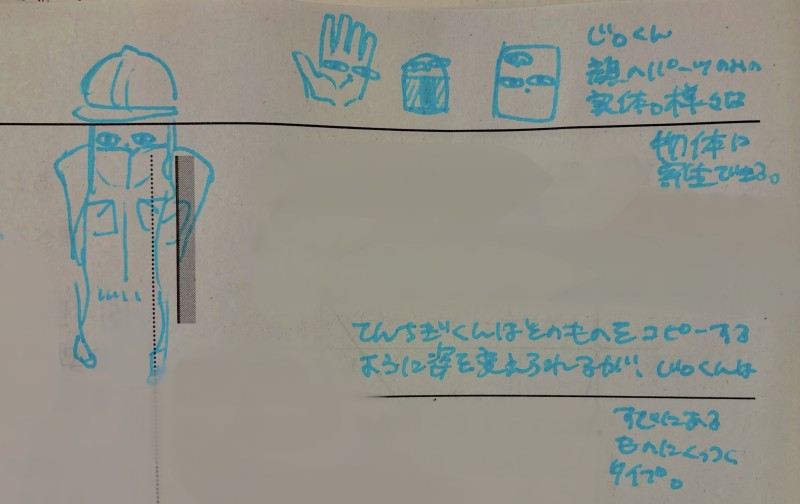 じ。くん
顔のパーツのみの
実体。様々な
物体に
寄生できる。
てんちぎくんはそのものをコピーする
ように姿を変えられるが、じ。くんは
すでにある
ものにくっつく
タイプ。